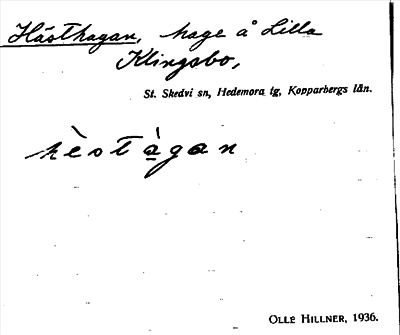 Hästhagan, hage å Lilla
Klingsbo,
St. Skedvi sn, Hedemora tg, Kopparbergs län.
hὲstàgan
OLLE HILLNER, 1936.